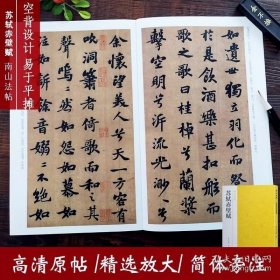 空背设计 易于平摊
苏轼赤壁赋
南山法帖
如遺世獨立羽化而登
於是飲酒樂甚扣舷而
歌之歌曰桂棹兮蘭槳
擊空明兮泝流光渺
余懷望美人兮天一方客有
吹洞簫者倚歌而和之其
聲嗚嗚然如怨如慕
如訴餘音嫋嫋不絕如
苏轼赤壁赋
高清原帖/精选放大/简体旁注